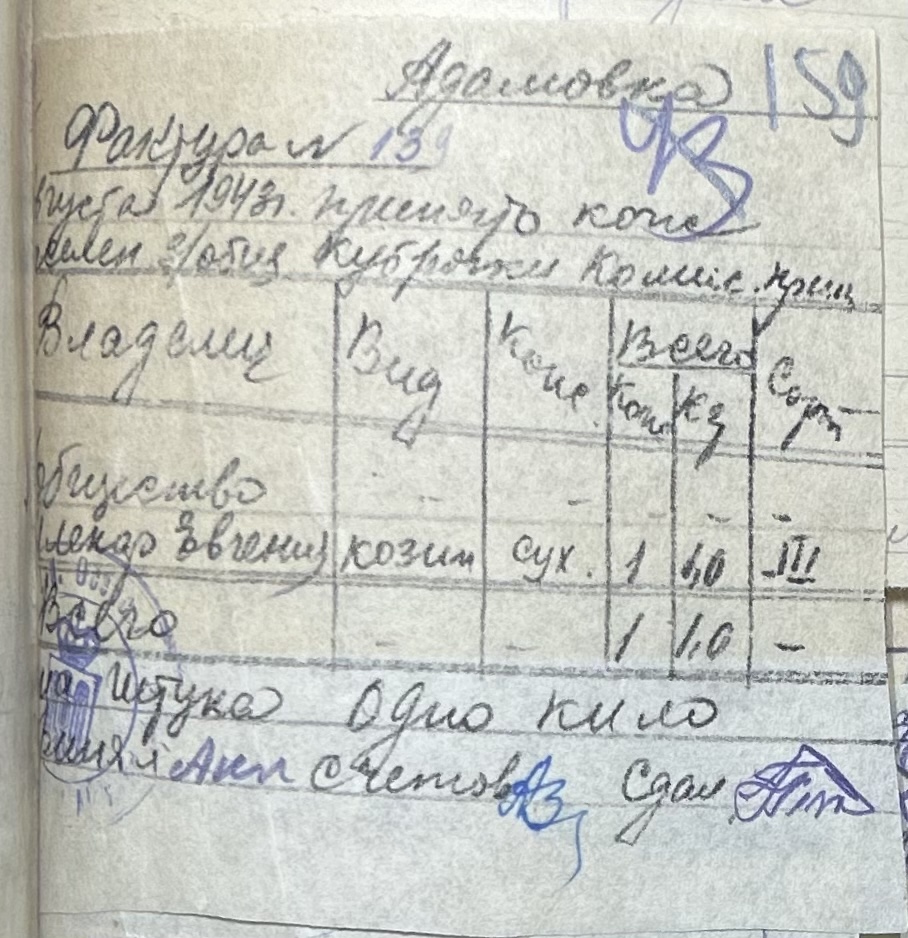 Адамовка 159
Фактура № 139
густа 1943г. принято кож
селен з/общ Кубрячки Комис. прин
Владелец Вид Конс. Всего Сорт
Кож Кг
общество - - - - -
Евгений козин сух. 1 1,0 III
Всего - - 1 1,0 -
на Штука Одно кило
ринял Акп Счетов Сдал